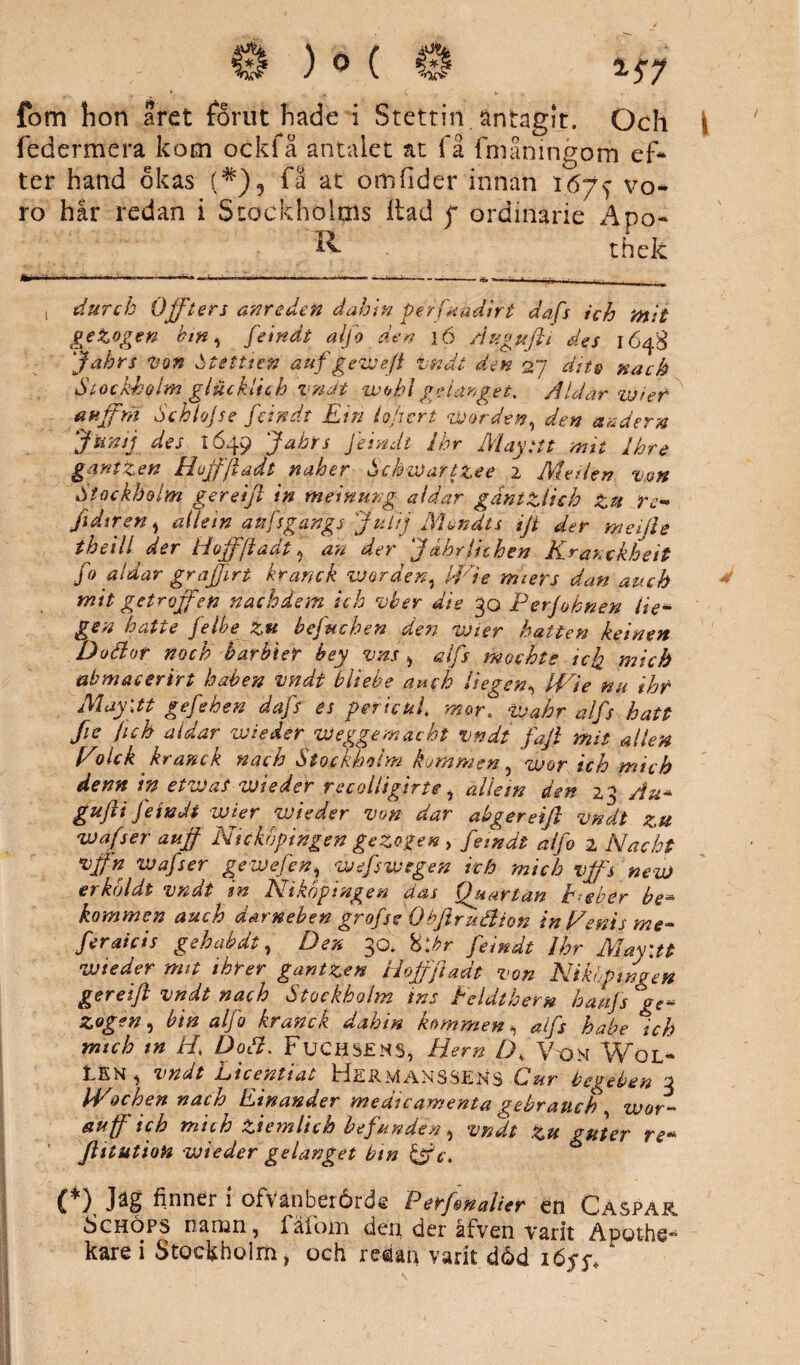 ) o ( 257
som hon året förut hade i Stettin antagit. Och
sedermera kom också antalet at få småningom ef-
ter hand ökas (*), få at omsider innan 1675 vo-
ro här redan i Stockholms stad 5 ordinarie Apo-
R thek
durch Offters anreden dahin persuadirt dass ich mit
gezogen bin, seindt also den 16 Augusti des 1648
Jahrs von Stettien auf gewest vndt den 27 dito nach
Stockholm glücklich vndt wohl gelanget. Aldar wier
auff'm Schlosse seindt Ein losiert worden, den andern
Junij des 1649 Jahrs seindt Ihr May:tt mit Ihre
gantzen Hoffstadt naher Schwartzee 2 Meilen von
Stockholm gereist in meinung aldar gäntzlich zu re-
sidiren, allein aufsgangs Julij Mondts ist der meiste
theill der Hoffstadt, an der Jährlichen Kranckheit
so aldar grassirt kranck worden, Wie miers dan auch
mit getroffen nachdem ich vber die 30 Persohnen lie-
gen hatte selbe zu besuchen den wier hatten keinen
Doctor noch barbier bey vns, alss mochte ich mich
abmacerirt haben vndt bliebe auch liegen, Wie nu ihr
May:tt gesehen dass es pericul. mor. wahr alss hatt
sie sich aldar wieder weggemacht vndt fast mit allen
Volck kranck nach Stockholm kommen, wor ich mich
denn in etwas wieder recolligirte, allein den 23 Au-
gusti seindt wier wieder von dar abgereist vndt zu
wasser auff Nickøpingen gezogen, seindt also 2 Nacht
vff'n wasser gewesen, wesswegen ich mich vff's new
erköldt vndt in Niköpingen das Quartan Fieber be-
kommen auch darneben grosse Obstruction in Venis me-
seraicis gehabdt, Den 30. 8:br seindt Ihr May:tt
wieder mit ihrer gantzen Hoffstadt von Niköpingen
gereist vndt nach Stockholm ins Feldthern hauss ge-
zogen, bin also kranck dahin kommen, alss habe ich
mich in H. Doct. FUCHSENS, Hern D. VON WOL-
LEN, vndt Licentiat HERMANSSENS Cur begeben 3
Wochen nach Einander medicamenta gebrauch, wor-
auff ich mich ziemlich befunden, vndt zu guter re-
stitution wieder gelanget bin &c.
(*) Jag finner i ofvanberörde Personalier en CASPAR
SCHÖPS namn, såsom den der äfven varit Apothe-
kare i Stockholm, och redan varit död 1655.